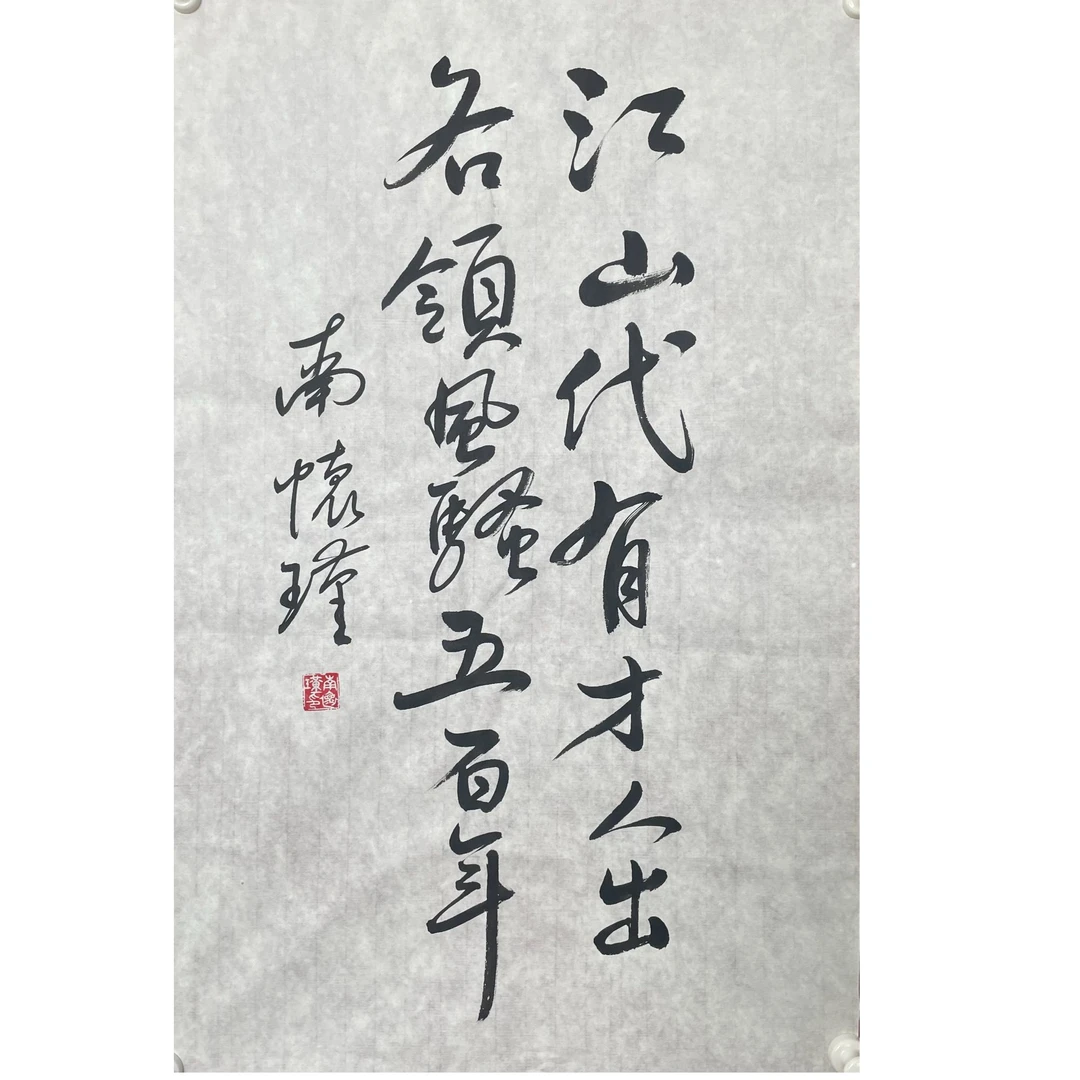 江山代有才人出
各領風騷五百年
南懷瑾